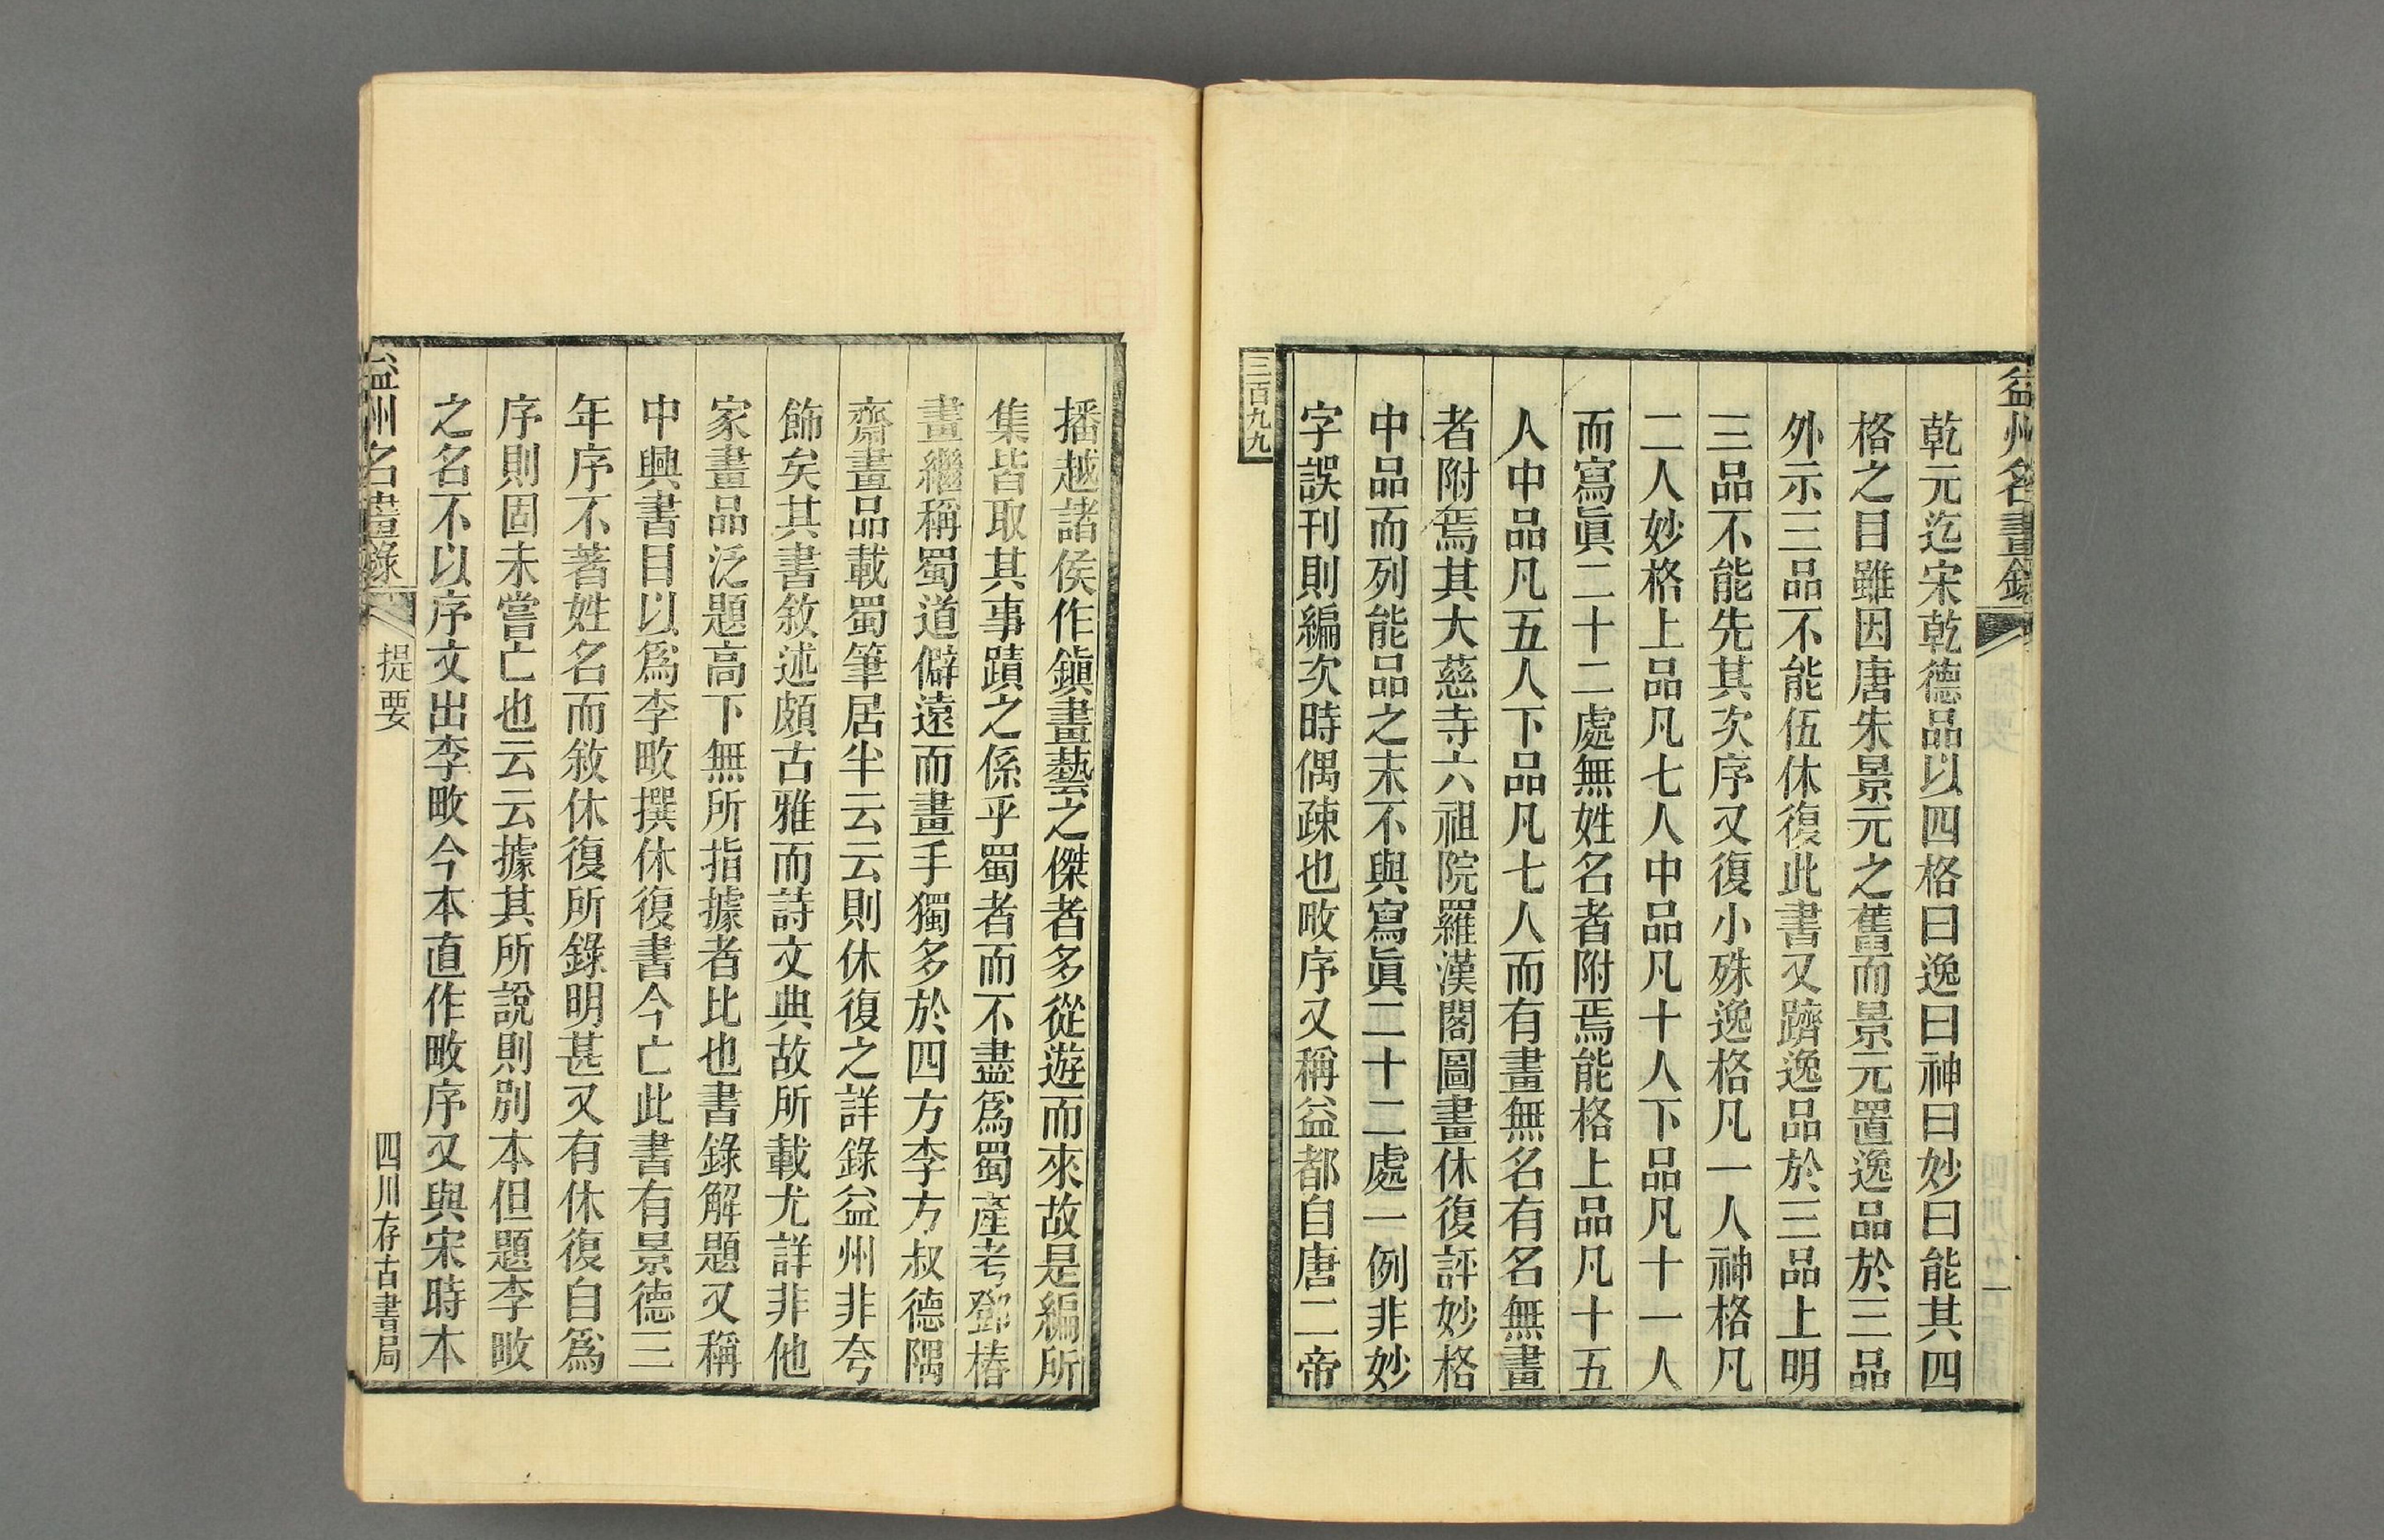 益州名畫錄
一
乾元迄宋乾德品以四格曰逸曰神曰妙曰能其四
格之目雖因唐朱景元之舊而景元置逸品於三品
外示三品不能伍休復此書又躋逸品於三品上明
三品不能先其次序又復小殊逸格凡一人神格凡
二人妙格上品凡七人中品凡十人下品凡十一人
而寫眞二十二處無姓名者附焉能格上品凡十五
人中品凡五人下品凡七人而有畫無名有名無畫
者附焉其大慈寺六祖院羅漢閣圖畫休復評妙格
中品而列能品之末不與寫眞二十二處一例非妙
字誤刊則編次時偶疎也畋序又稱益都自唐二帝
三百九九
播越諸侯作鎭畫藝之傑者多從遊而來故是編所
集皆取其事蹟之係乎蜀者而不盡爲蜀產考鄧椿
畫繼稱蜀道僻遠而畫手獨多於四方李方叔德隅
齋畫品載蜀筆居半云云則休復之詳錄益州非夸
飾矣其書敘述頗古雅而詩文典故所載尤詳非他
家畫品泛題高下無所指據者比也書錄解題又稱
中興書目以爲李畋撰休復書今亡此書有景德三
年序不著姓名而敘休復所錄明甚又有休復自爲
序則固未嘗亡也云云據其所說則別本但題李畋
之名不以序文出李畋今本直作畋序又與宋時本
益州名畫錄
提要
四川存古書局